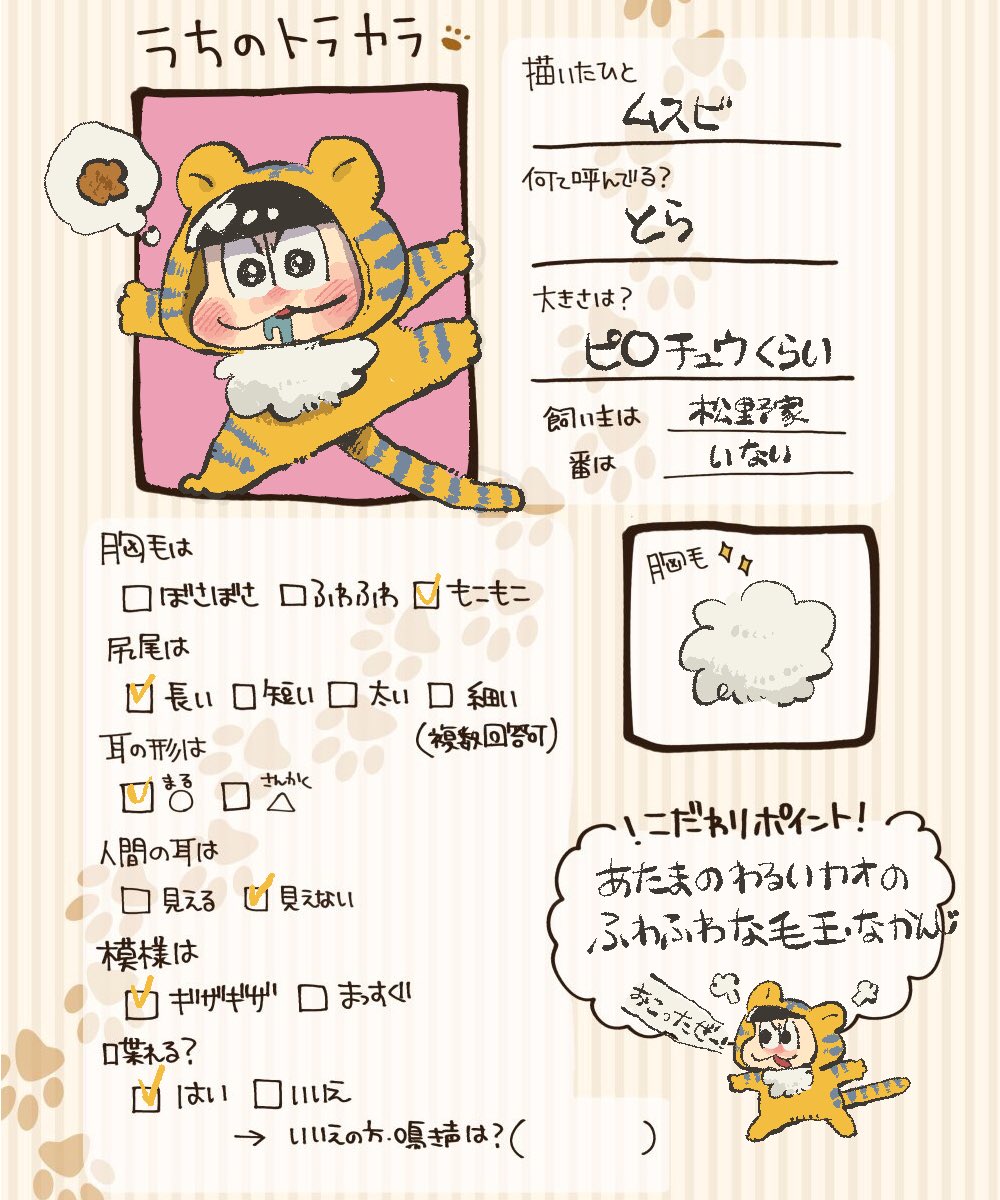 うちのトラカラ
描いたひと
ムスビ
何て呼んでる?
とら
大きさは?
ピ○チュウくらい
飼い主は 松野家
番は いない
胸毛は
ぼさぼさ ふわふわ もこもこ
尻尾は
長い 短い 太い 細い
(複数回答可)
耳の形は
まる さんかく
○ △
人間の耳は
見える 見えない
模様は
ギザギザ まっすぐ
喋れる?
はい いいえ
→ いいえの方・鳴き声は?( )
胸毛
!こだわりポイント!
あたまのわるいカオの
ふわふわな毛玉なかんじ
おこったぜー!